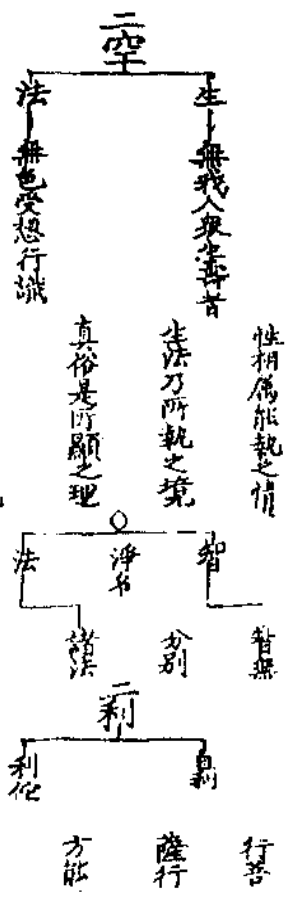 二空
生
無我人衆生壽者
法
無色受想行識
性相屬能執之情
生法乃所執之境
真俗是所顯之理
○
智
淨名
法
皆無
分別
諸法
二利
自利
利他
行菩
薩行
方能